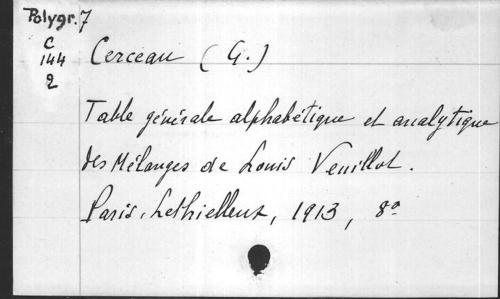 Polygr. 7
C
144
2
Cerceau (G.)
Table générale alphabétique et analytique
des Mélanges de Louis Veuillot.
Paris, Lethielleux, 1913, 8º